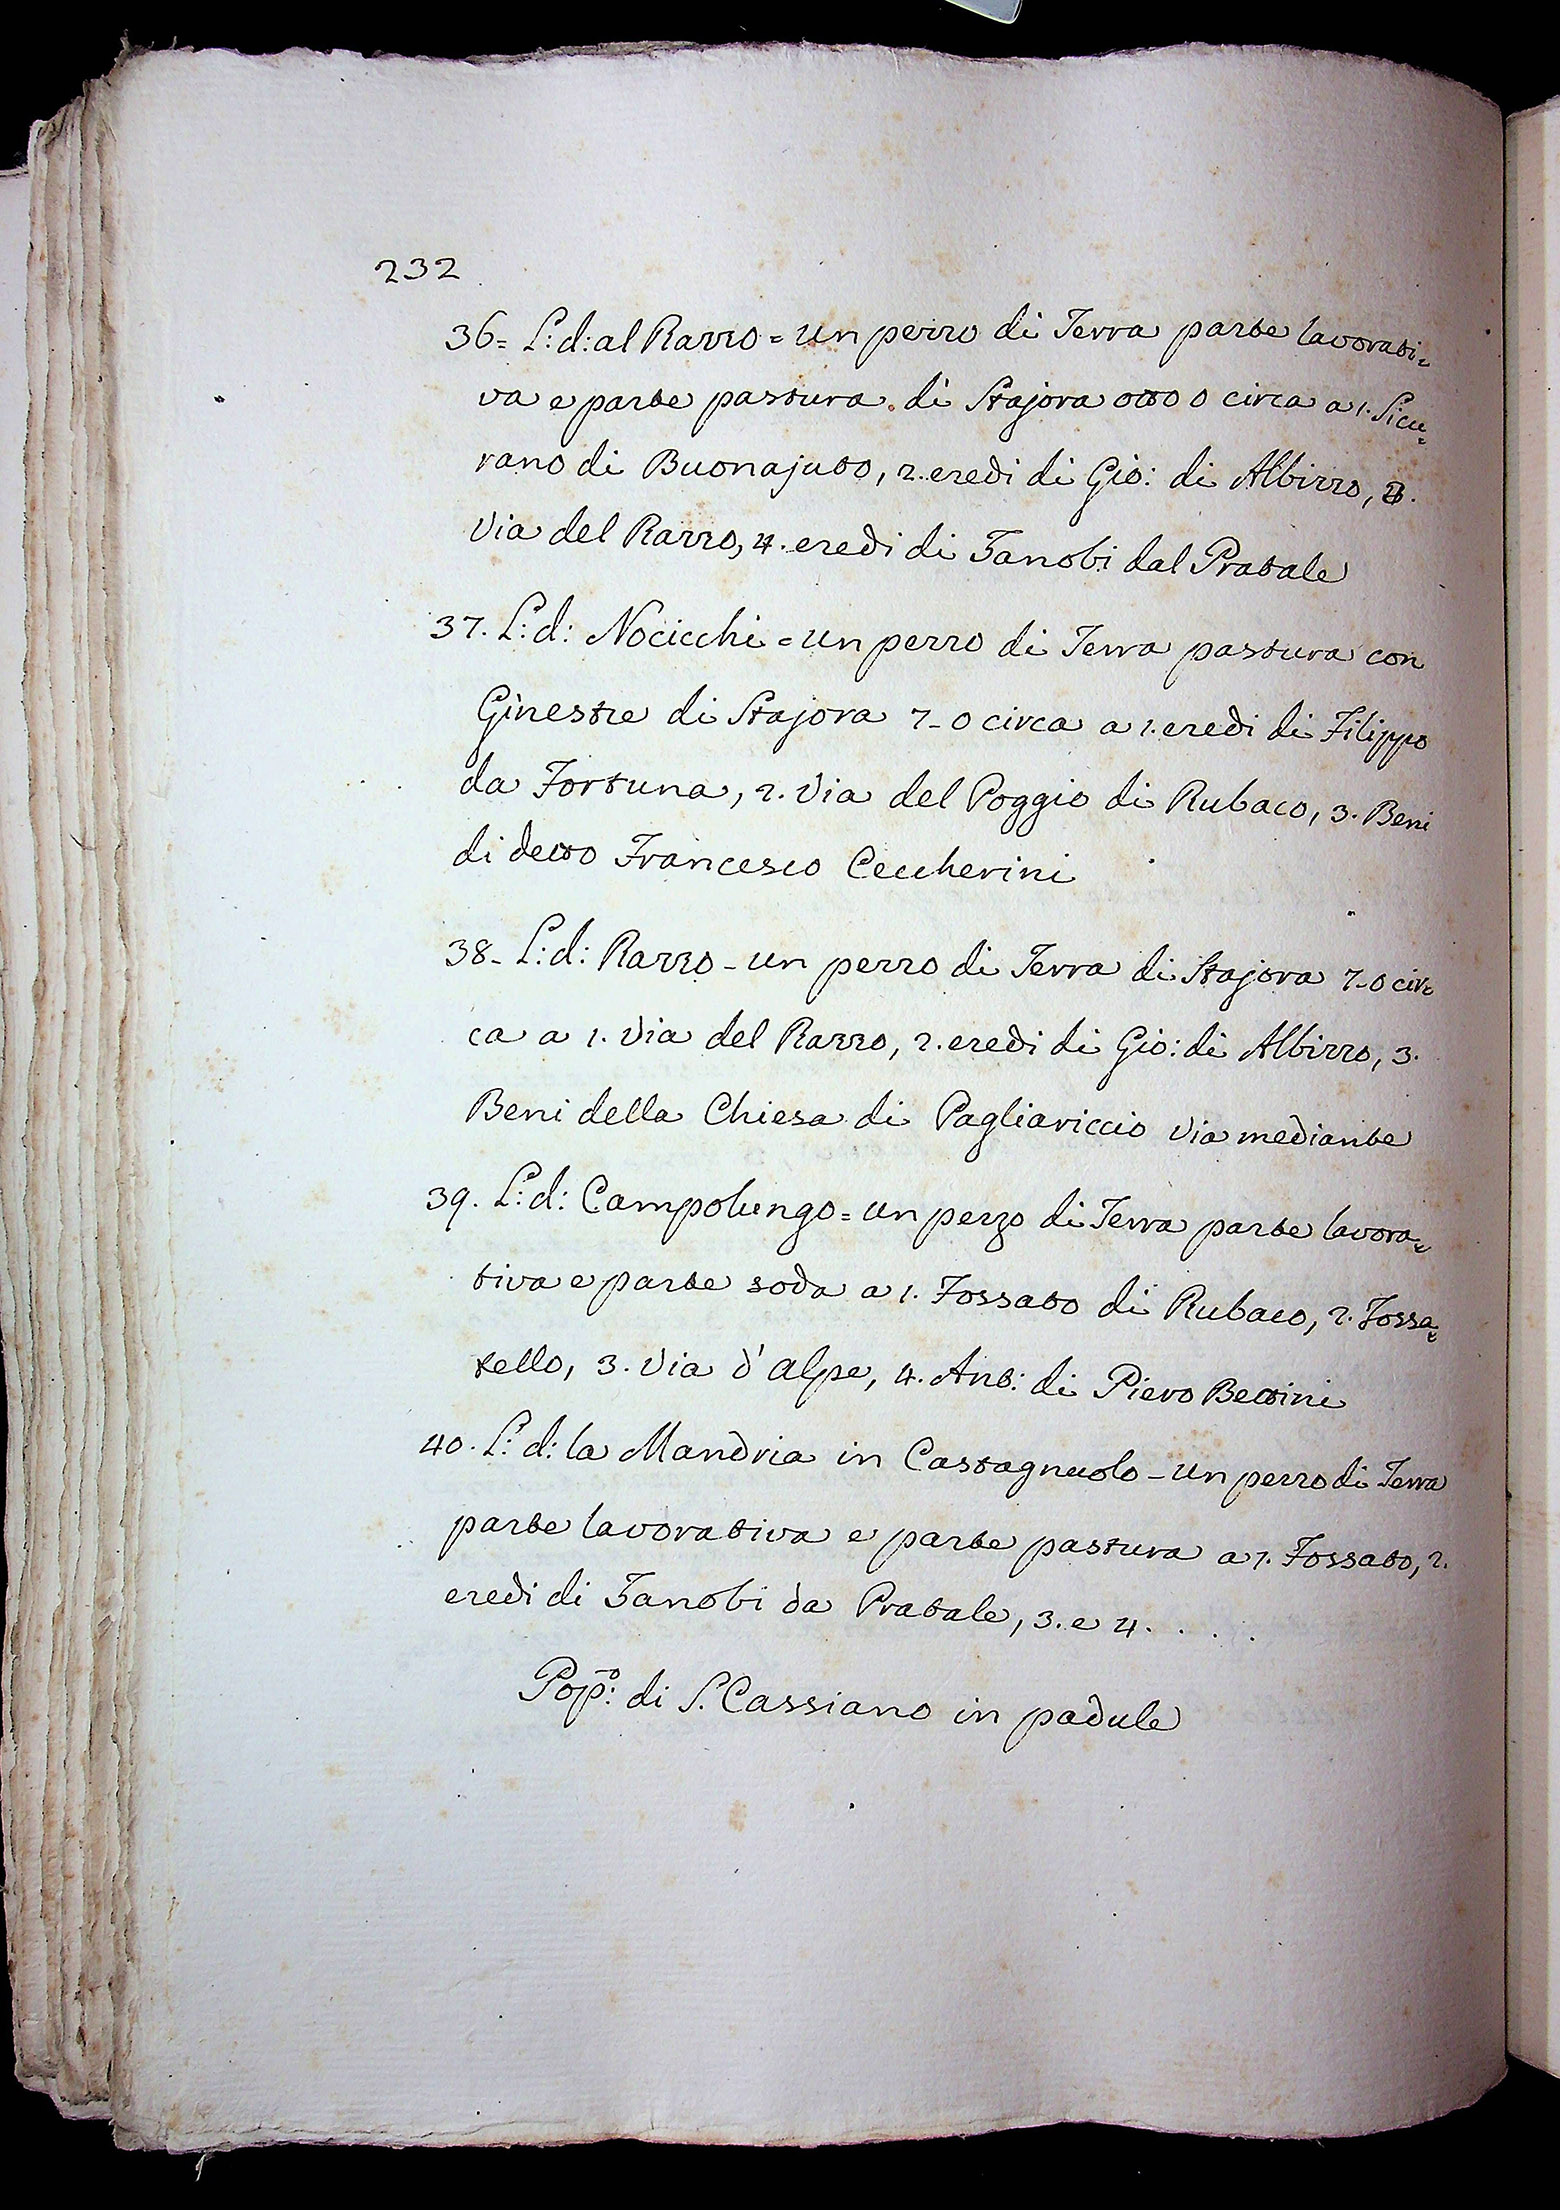 232
36= L: d: al Razzo = un pezzo di Terra parte lavorati=
va e parte pastura di Stajora otto 0 circa a 1. Sicu=
rano di Buonajuto, 2. eredi di Gio: di Albizzo, 3.
Via del Razzo, 4. eredi di Zanobi dal Pratale
37. L: d: Nocicchi = un pezzo di Terra pastura con
Ginestre di Stajora 7_0 circa a 1. eredi di Filippo
da Fortuna, 2. Via del Poggio di Rubaco, 3. Beni
di detto Francesco Ceccherini
38_ L: d: Razzo _ un pezzo di Terra di Stajora 7_0 cir=
ca a 1. Via del Razzo, 2. eredi di Gio: di Albizzo, 3.
Beni della Chiesa di Pagliariccio Via mediante
39. L: d: Campolungo = un pezzo di Terra parte lavora=
tiva e parte soda a 1. Fossato di Rubaco, 2. Fossa=
tello, 3. Via d'alpe, 4. Ant: di Piero Bettini
40. L: d: la Mandria in Castagnuolo _ un pezzo di Terra
parte lavorativa e parte pastura a 1. Fossato, 2.
eredi di Zanobi da Pratale, 3. e 4. . . . .
Popo: di S. Cassiano in padule